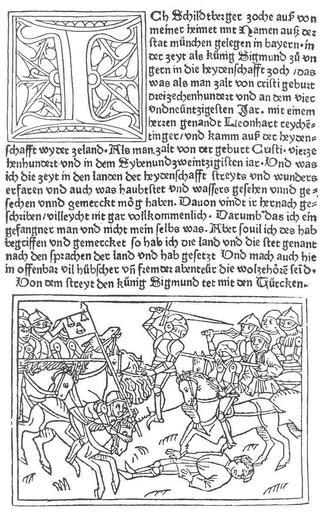 Ich Schildtberger zoche auß von
meiner heimet mit Namen auß der
stat münchen gelegen in bayern· in
der zeyt als künig Sigmund zů vn
gern in die heydenschafft zoch / das
was als man zalt von cristi geburt
dreizehenhundert vnd an dem vier
vndneüntzigesten Jar· mit einem
herren genandt Leonhart reychē-
tinger / vnd kamm auß der heyden-
schafft wyder zeland· Als man zalt von der geburt Cristi· vierze
henhundert vnd in dem Sybenundzweintzigisten iar· Vnd was
ich die zeyt in den landen der heydenschafft streyts vnd wunders
erfaren vnd auch was haubtstet vnd wassers gesehen vnnd ge-
sechen vnnd gemerckt mög haben· Dauon vindt ir hernach ge-
schriben / villeyche nit gar vollkommenlich· Darumb das ich ein
gefangner man vnd nicht mein selbs was· Aber souil ich des hab
begriffen vnd gemercket so hab ich die land vnd die stet genant
nach den sprachen der land vnd hab gesetze Vnd mach auch hie
in offenbar vil hübscher vñ fremder abenteür die wolzehörē seīd·
Von dem streyt den künig Sigmund tet mit den Türcken·